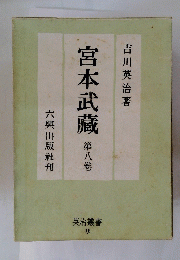 吉川英治著
宮本武藏
第八卷
六興出版社刊
吉川英治叢書
9